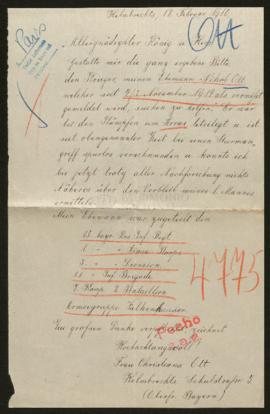 Helmbrechts, 18. Februar 1916.
Ott
Allergnädigster König u. Herr
Gestatte mir die ganz ergebene Bitte,
den Pionier, meinen Ehemann Nikol. Ott
welcher seit 2/3. November 1914 als vermisst
gemeldet wurde, suchen zu lassen. Er war
bei den Kämpfen um beteiligt u. ist
seit obengenannter Zeit bei einem Sturman-
griff spurlos verschwunden u. konnte ich
bis jetzt trotz aller Nachforschung nichts
Näheres über den Verbleib meines l. Mannes
ermitteln.
Mein Ehemann war zugeteilt den
bayr. Res. Inf. Regt.
1. " " Korps
" " Division
" Inf. Brigade
4775
7. Komp. 2. Bataillon
Armeegruppe Falkenhausen
pecho
zeichnet
Hochachtungsvoll
Frau Christiana Ott
Helmbrechts Schulstrasse
(Oberfr. Bayern)